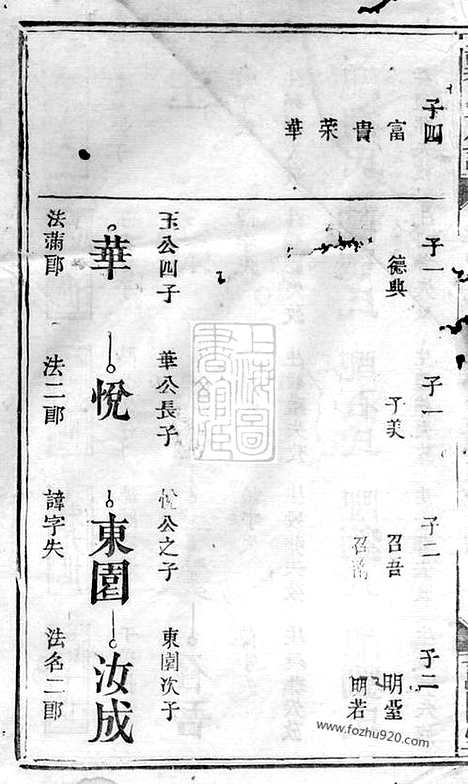 子四
富貴榮華
子一
德典
玉公四子
華
法滿郎
子一
美
華公長子
悅
法二郎
子二
召吾
召
悅公之子
東園
諱字失
子二
明堂
明若
東園次子
汝成
法名二郎
上海圖
書館藏
www.fozhu920.com